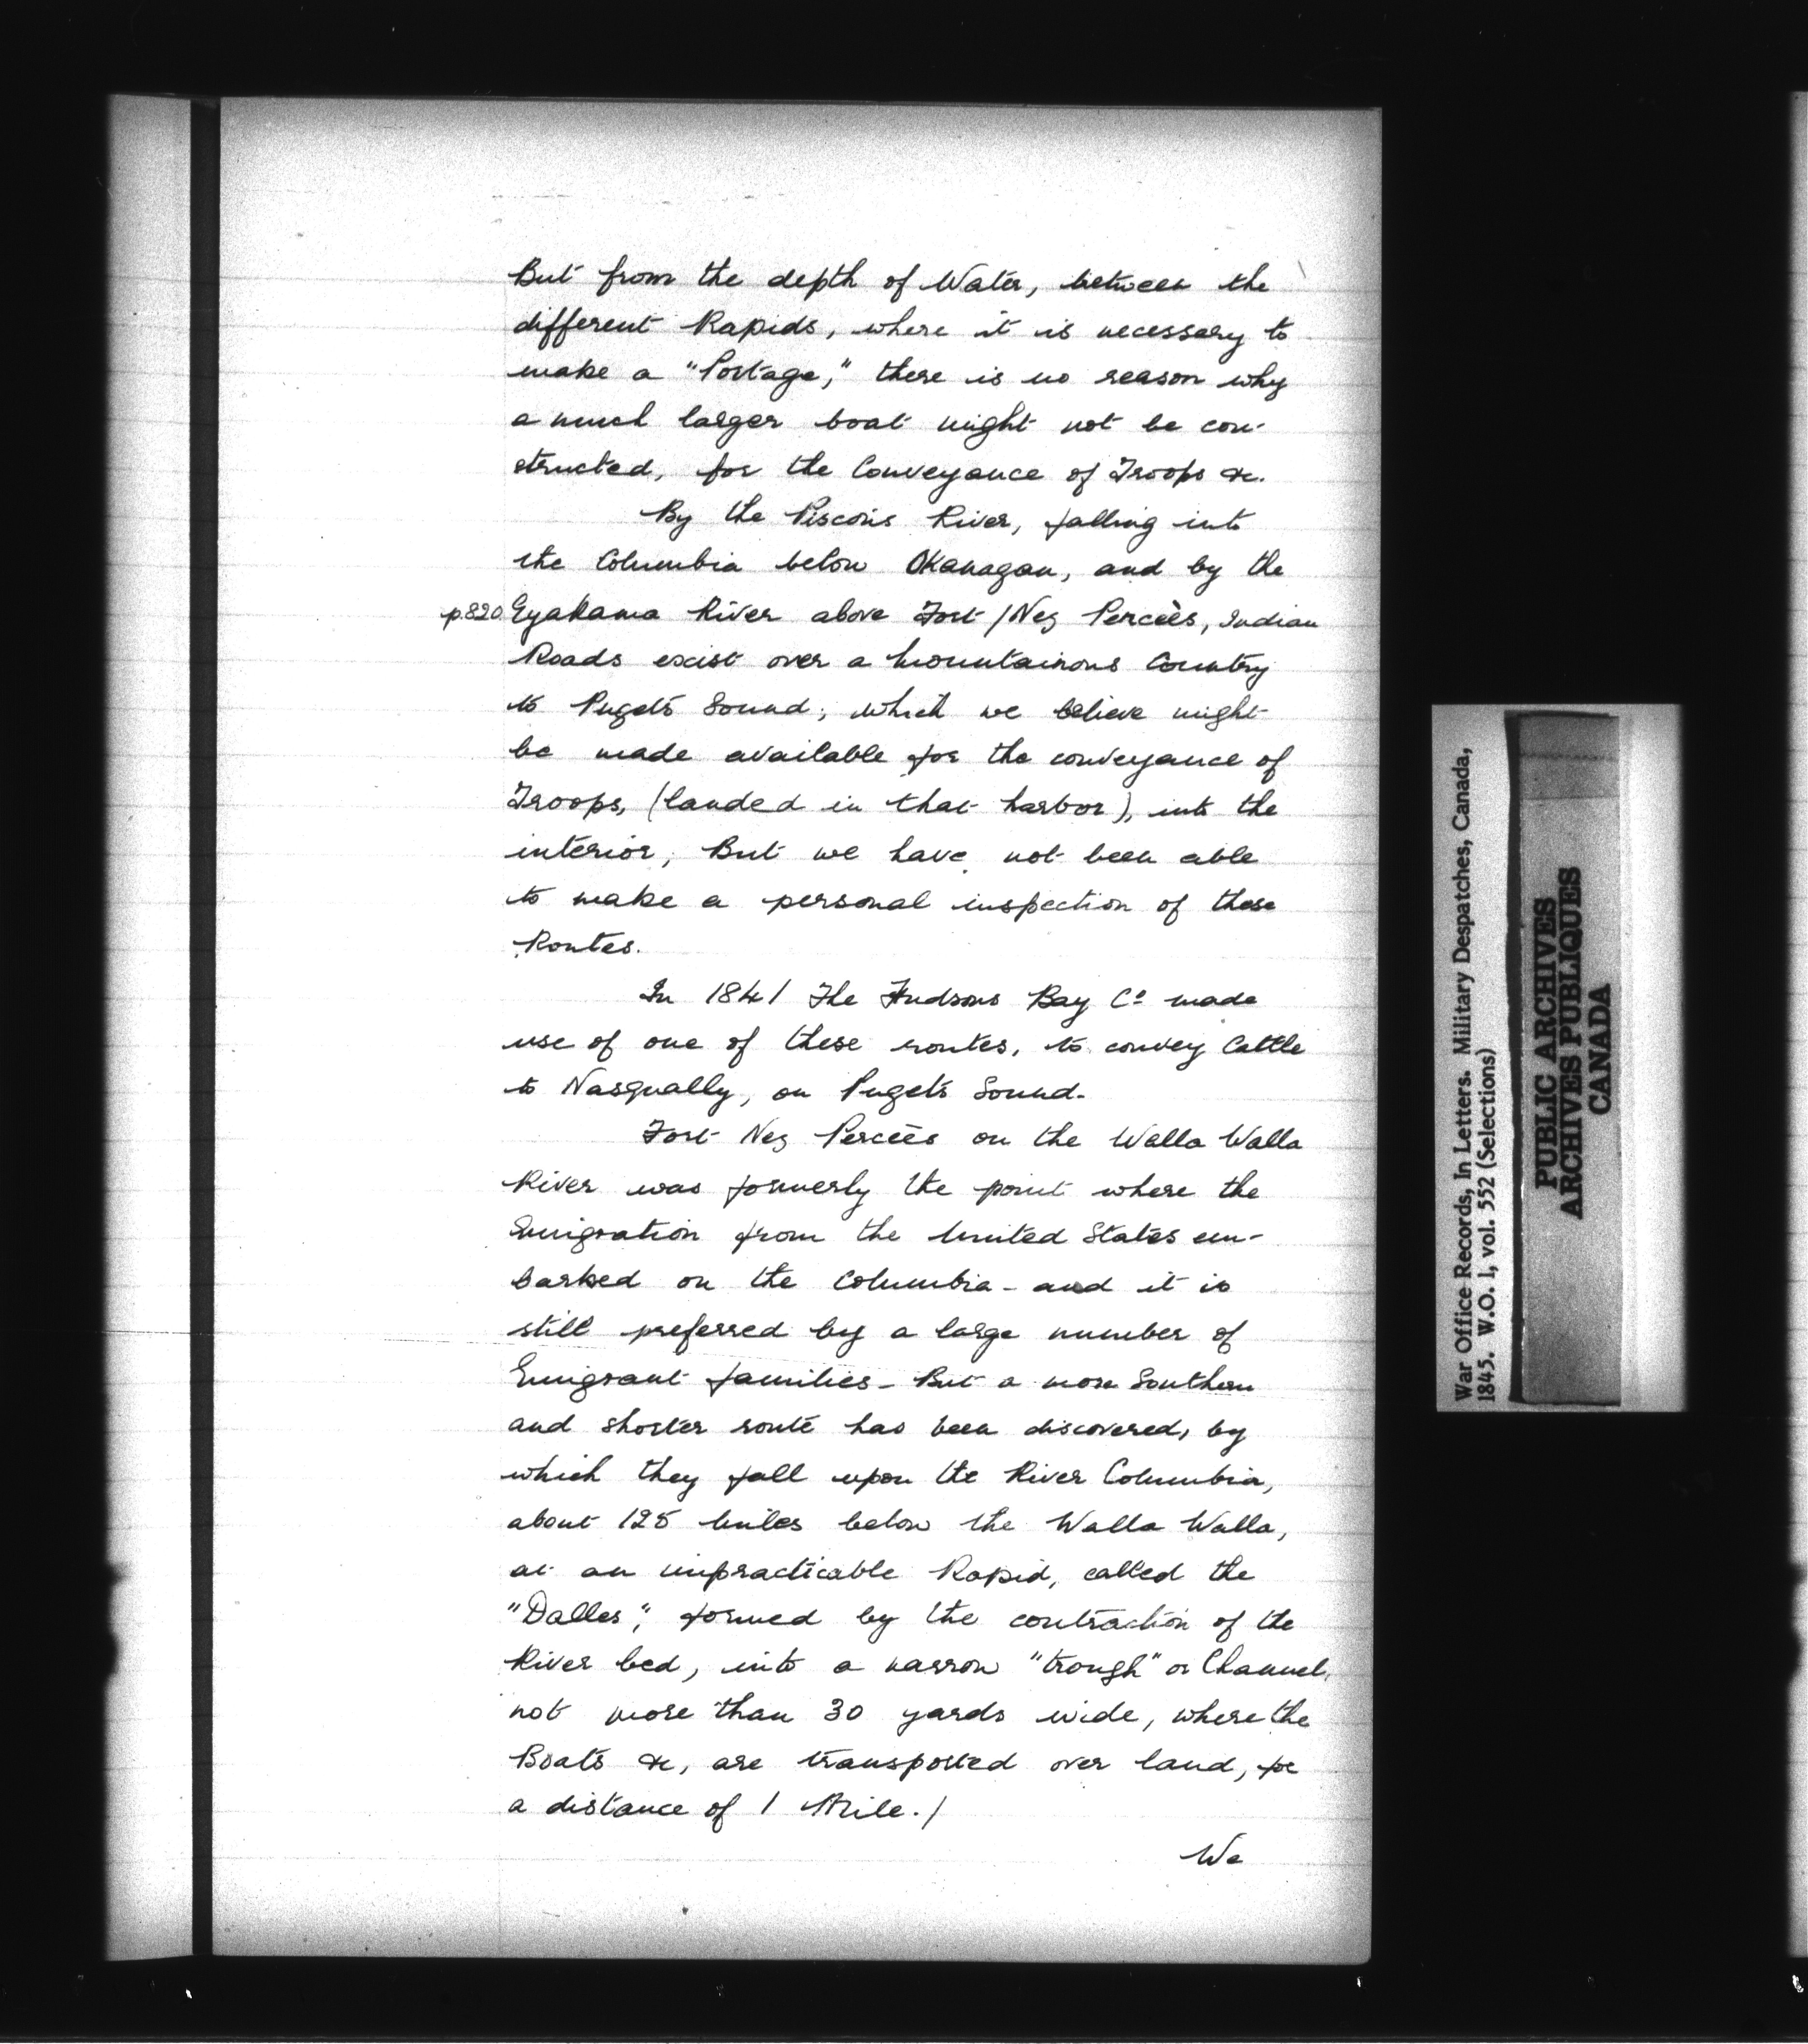 But from the depth of Water, between the
different Rapids, where it is necessary to
make a "Portage," there is no reason why
a much larger boat might not be con-
structed, for the Conveyance of Troops &c.
By the Piscous River, falling into
the Columbia below Okanagan, and by the
p.820 Eyakama River above Fort / Nez Percès, Indian
Roads exist over a mountainous Country
to Puget's Sound; which we believe might
be made available for the conveyance of
Troops, (landed in that harbor), into the
interior; But we have not been able
to make a personal inspection of these
Routes.
In 1841 The Hudsons Bay Co made
use of one of these routes, to convey Cattle
to Nasqually, on Puget's Sound.
Fort Nez Percès on the Walla Walla
River was formerly the point where the
Emigration from the United States em-
barked on the Columbia - and it is
still preferred by a large number of
Emigrant families - But a more Southern
and shorter route has been discovered, by
which they fall upon the River Columbia,
about 125 miles below the Walla Walla,
at an impracticable Rapid, called the
"Dalles", formed by the contraction of the
River bed, into a narrow "trough" or Channel,
not more than 30 yards wide, where the
Boats &c, are transported over land, for
a distance of 1 Mile. /
We
War Office Records, In Letters. Military Despatches, Canada,
1845. W.O. 1, vol. 552 (Selections)
PUBLIC ARCHIVES
ARCHIVES PUBLIQUES
CANADA